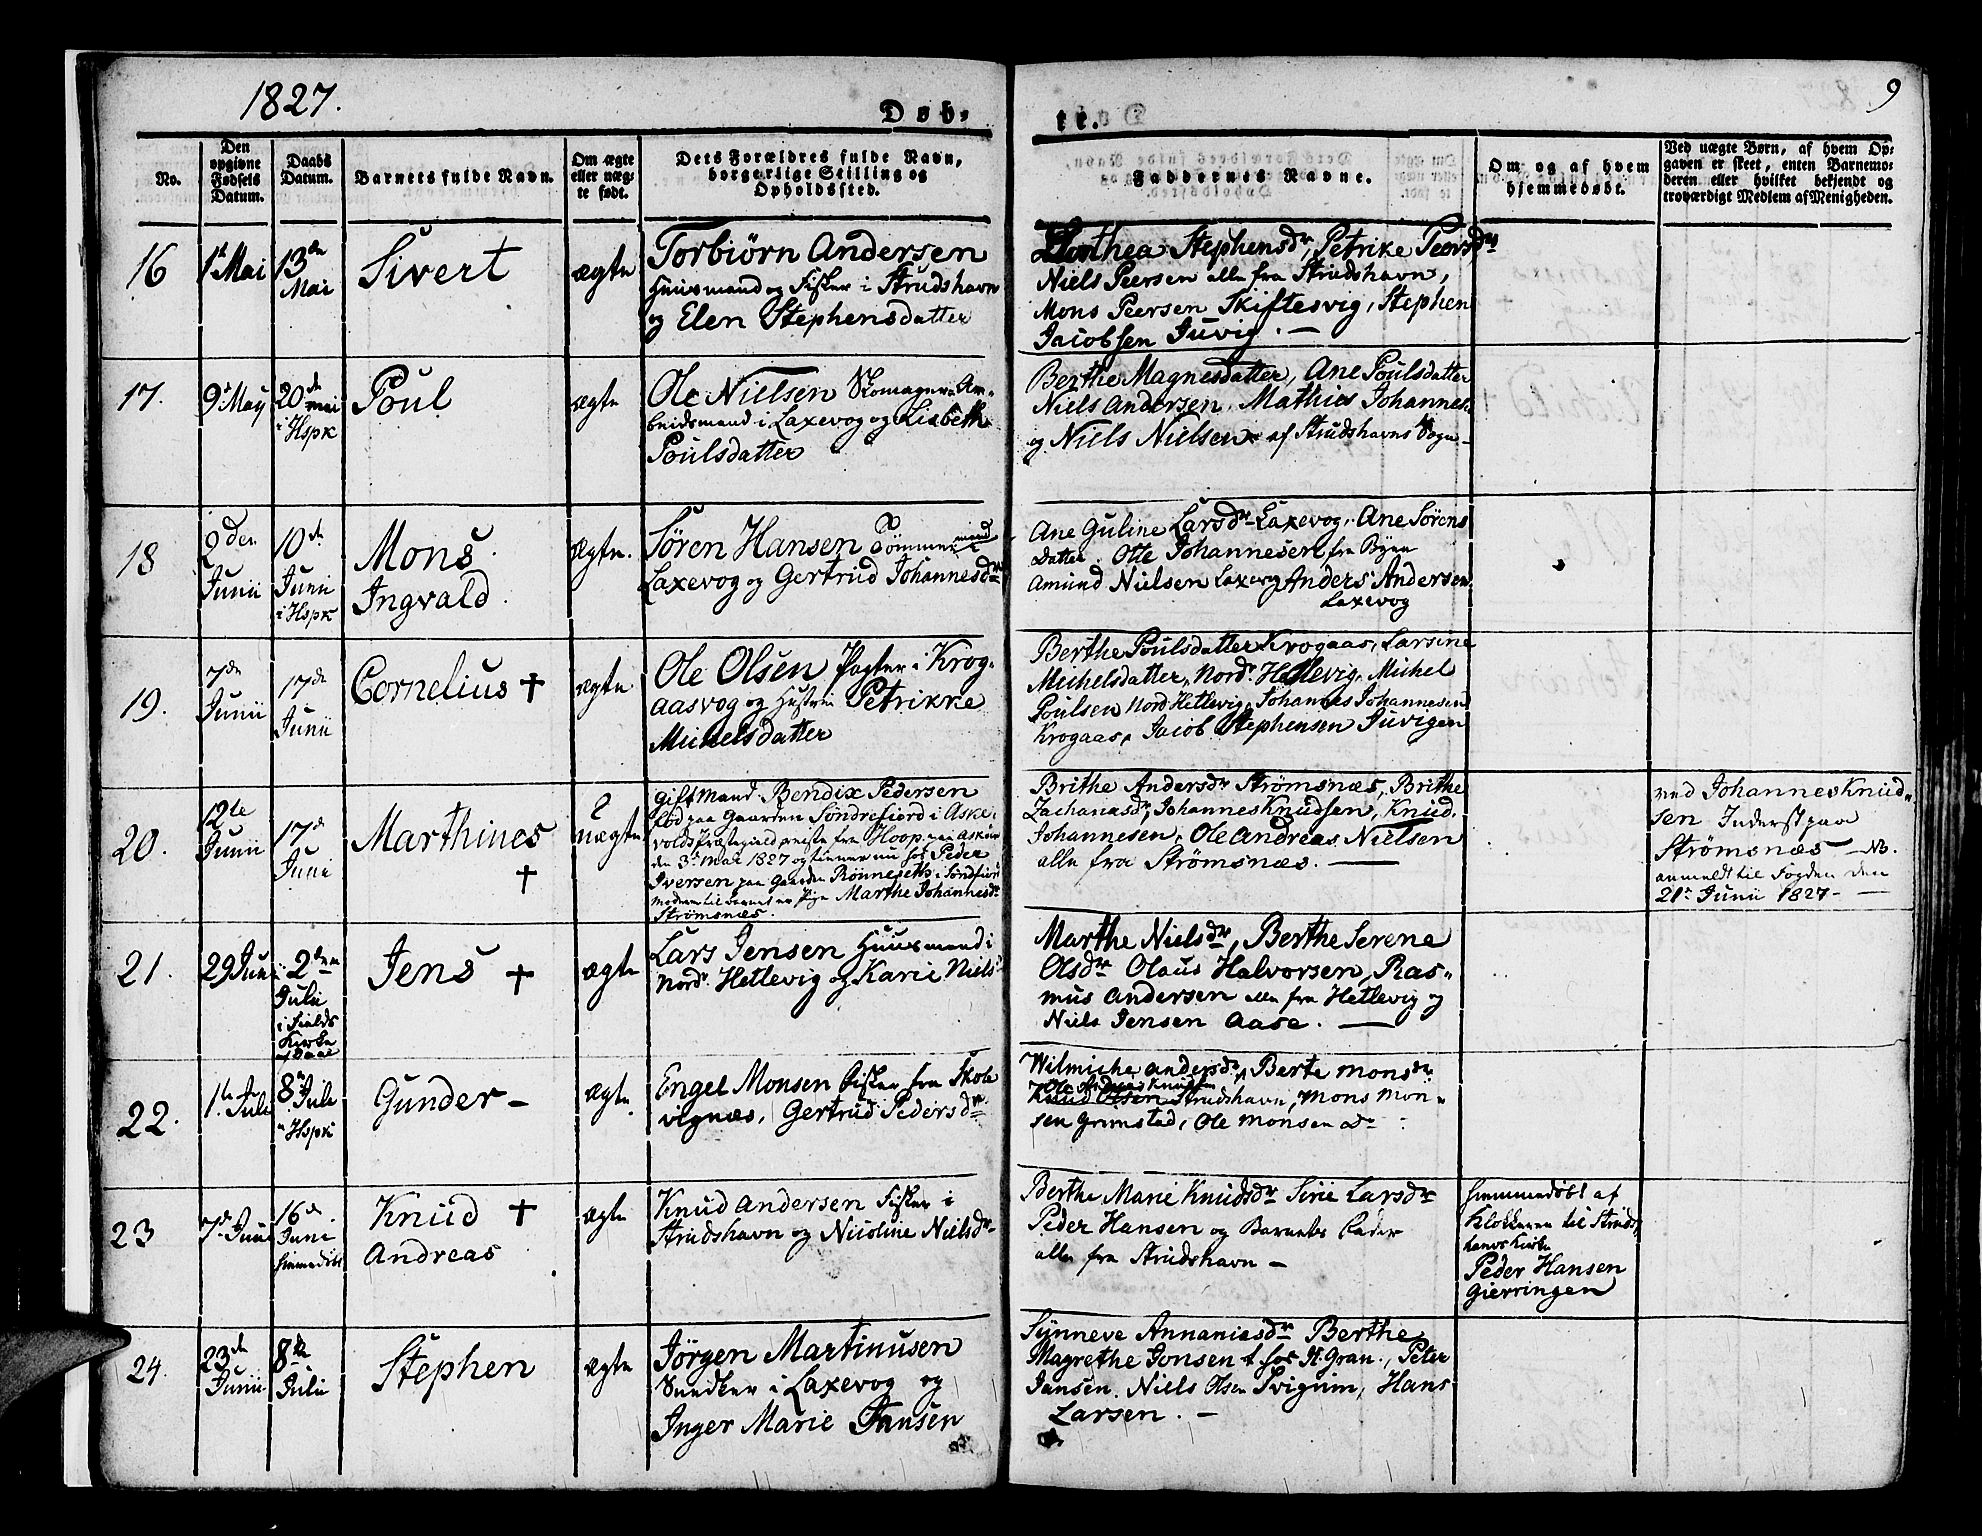 1827.
Døb-
te.
9
No.
Den opgivne Fødsels Datum.
Daabs Datum.
Barnets fulde Navn.
Om ægte eller uægte født.
Dets Forældres fulde Navn, borgerlige Stilling og Opholdssted.
Faddernes Navne.
Om og af hvem hjemmedøbt.
Ved uægte Børn, af hvem Opgaven er skeet, enten Barnemoderen eller hvilket bekjendt og troværdigt Medlem af Menigheden.
16
1 Mai
13de
Mai
Sivert
ægte
Torbiørn Andersen
Huusmand og Fisker i Strudshavn
og Elen Stephensdatter
Dorthea Stephensdr, Petrike Peersdr
Niels Peersen alle fra Strudshavn,
Mons Peersen Skiftesvig, Stephen
Jacobsen Juvig. —
17.
9 May
20de
mai
i Hspk
Poul
ægte
Ole Nielsen Skomager Ar-
beidsmand i Laxevog og Lisbeth
Poulsdatter
Berthe Magnesdatter, Ane Poulsdatter
Niels Andersen, Mathies Johannes.
og Niels Nielsen af Strudshavns Sogn
18
2den
Junii
10de
Junii
i Hspk
Mons
Ingvald
ægte.
Sören Hansen Tömmermand
Laxevog og Gertrud Johannesdr
Ane Guline Larsdr Laxevog, Ane Sörens
Datter, Ole Johannesen fra Byen
Amund Nielsen Laxevog Anders Andersen
Laxevog
19.
7de
Junii
17de
Junii
Cornelius +
ægte
Ole Olsen Pagter i Krog-
aasvog og Hustru Petrikke
Michelsdatter
Berthe Poulsdatter Krogaas, Larsine
Michelsdatter, Nordr Hetlevig, Michel
Poulsen Nord Hetlevig, Johannes Johannesen
Krogaas, Jacob Stephensen Juvigen
20.
12te
Junii
17de
Juni
Marthines
+
uægte
Gift Mand Bendix Pedersen
fød paa Gaarden Söndrefiord i Aske-
volds Præstegield reiste fra Hoop paa Askøen
den 3 Mai 1827 og tiener nu hos Peder
Iversen paa Gaarden Rönneseth i Söndfiord
Moderen til Barnet er Pige Marthe Johannesdr
Strömsnæs.
Brithe Andersdr Strömsnæs, Brithe
Zachariasdr, Johannes Knudsen, Knud
Johannesen, Ole Andreas Nielsen
alle fra Strömsnæs. —
ved Johannes Knud-
sen Inderst paa
Strömsnæs — NB.
anmeldt til Fogden den
21 Junii 1827 —
21.
29 Juni
2den
Julii
i Fields
Kirke
Jens +
ægte
Lars Jensen Huusmand i
Nordr Hetlevig og Karie Niels
Marthe Nielsdr, Berthe Serene
Olsdr Olaus Halvorsen, Ras-
mus Andersen alle fra Hetlevig og
Niels Jensen Aase. —
22.
1te Jule
8
Jule
Hspk
Gunder —
ægte
Engel Monsen Fisker fra Skole
vignæs, Gertrud Pedersdr
Wilmiche Andersdr, Berte Monsdr
Ole Andreas Knudsen
Knud Olsen Strudshavn, Mons Mon-
sen Grimstad, Ole Monsen do
23
7de Juni
16de
Juni
hiemmedöbt
Knud +
Andreas
ægte
Knud Andersen Fisker i
Strudshavn og Nicoline Nielsdr
Berthe Marie Knudsdr Sirie Larsdr
Peder Hansen og Barnets Fader
alle fra Strudshavn —
hiemmedöbt af
Klokkeren til Struds-
havns Kirke
Peder Hansen
Gierringen
24.
23de
Junii
8de
Julii
Stephen
ægte
Jörgen Martinusen
Snedker i Laxevog og
Inger Marie Jansen
Sünneve Annaniasdr Berthe
Magrethe Jonsen t. hos H. Gran., Peter
Jansen, Niels Olsen Svigrim, Hans
Larsen. —